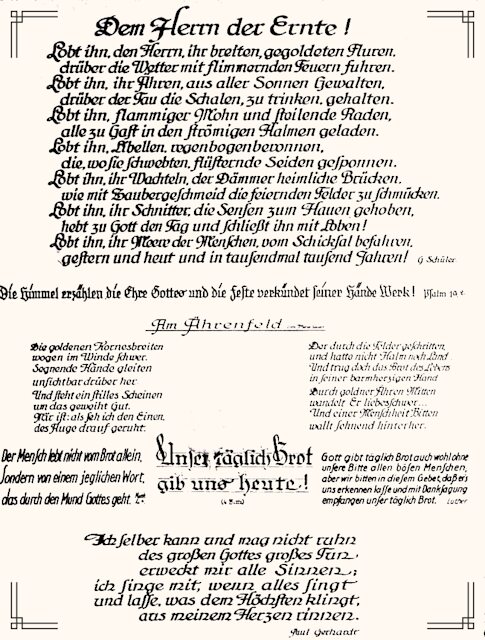 Dem Herrn der Ernte!
Lobt ihn, den Herrn, ihr breiten, gegoldeten Fluren,
drüber die Wetter mit flimmernden Feuern fuhren.
Lobt ihn, ihr Ähren, aus aller Sonnen Gewalten,
drüber der Tau die Schalen, zu trinken, gehalten.
Lobt ihn, flammiger Mohn und steilende Raden,
alle zu Gast in den strömigen Halmen geladen.
Lobt ihn, Libellen, regenbogenbewonnen,
die, wo sie schwebten, flüsternde Seiden gesponnen.
Lobt ihn, ihr Wachteln, der Dämmer heimliche Brücken,
wie mit Zaubergeschmeid die feiernden Felder zu schmücken.
Lobt ihn, ihr Schnitter, die Sensen zum Hauen gehoben,
hebt zu Gott den Tag und schließt ihn mit Loben!
Lobt ihn, ihr Meere der Menschen, vom Schicksal befahren,
gestern und heut und in tausendmal tausend Jahren! G. Schüler
Die Himmel erzählen die Ehre Gottes und die Feste verkündet seiner Hände Werk! Psalm 19,
Am Ährenfeld
Die goldenen Kornesbreiten
wogen im Winde schwer.
Segnende Hände gleiten
unsichtbar drüber her
Und steht ein stilles Scheinen
um das geweiht Gut.
Mir ist: als seh ich den Einen,
des Auge drauf geruht:
Der durch die Felder geschritten,
und hatte nicht Halm noch Land
Und trug doch das Brot des Lebens
in seiner barmherzigen Hand
Durch goldner Ähren Mitten
wandelt Er liebeschwer...
Und einer Menschheit Bitten
wallt sehnend hinter her.
Der Mensch lebt nicht vom Brot allein,
Sondern von einem jeglichen Wort,
das durch den Mund Gottes geht.
Unser täglich Brot
gib uns heute!
Gott gibt täglich Brot auch wohl ohne
unsere Bitte allen bösen Menschen,
aber wir bitten in diesem Gebet, daß er's
uns erkennen lasse und mit Danksagung
empfangen unser täglich Brot. Luther
Ich selber kann und mag nicht ruhn
des großen Gottes großes Tun
erweckt mir alle Sinnen;
ich singe mit, wenn alles singt
und lasse, was dem Höchsten klingt,
aus meinem Herzen rinnen.
Paul Gerhardt